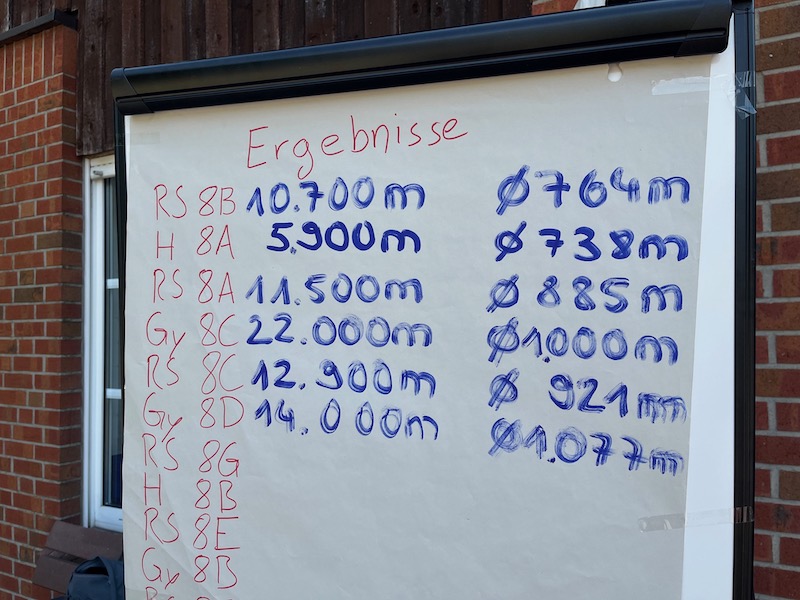 Ergebnisse
RS 8B 10.700m Ø 764m
H 8A 5.900m Ø 738m
RS 8A 11.500m Ø 885m
Gy 8C 22.000m Ø 1.000m
RS 8C 12.900m Ø 921m
Gy 8D 14.000m Ø 1.077m
RS 8G
H 8B
RS 8E
Gy 8B